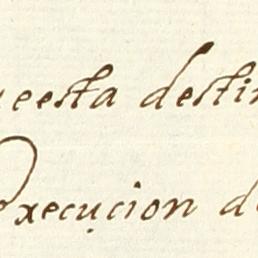 eesta destin
execuçion d